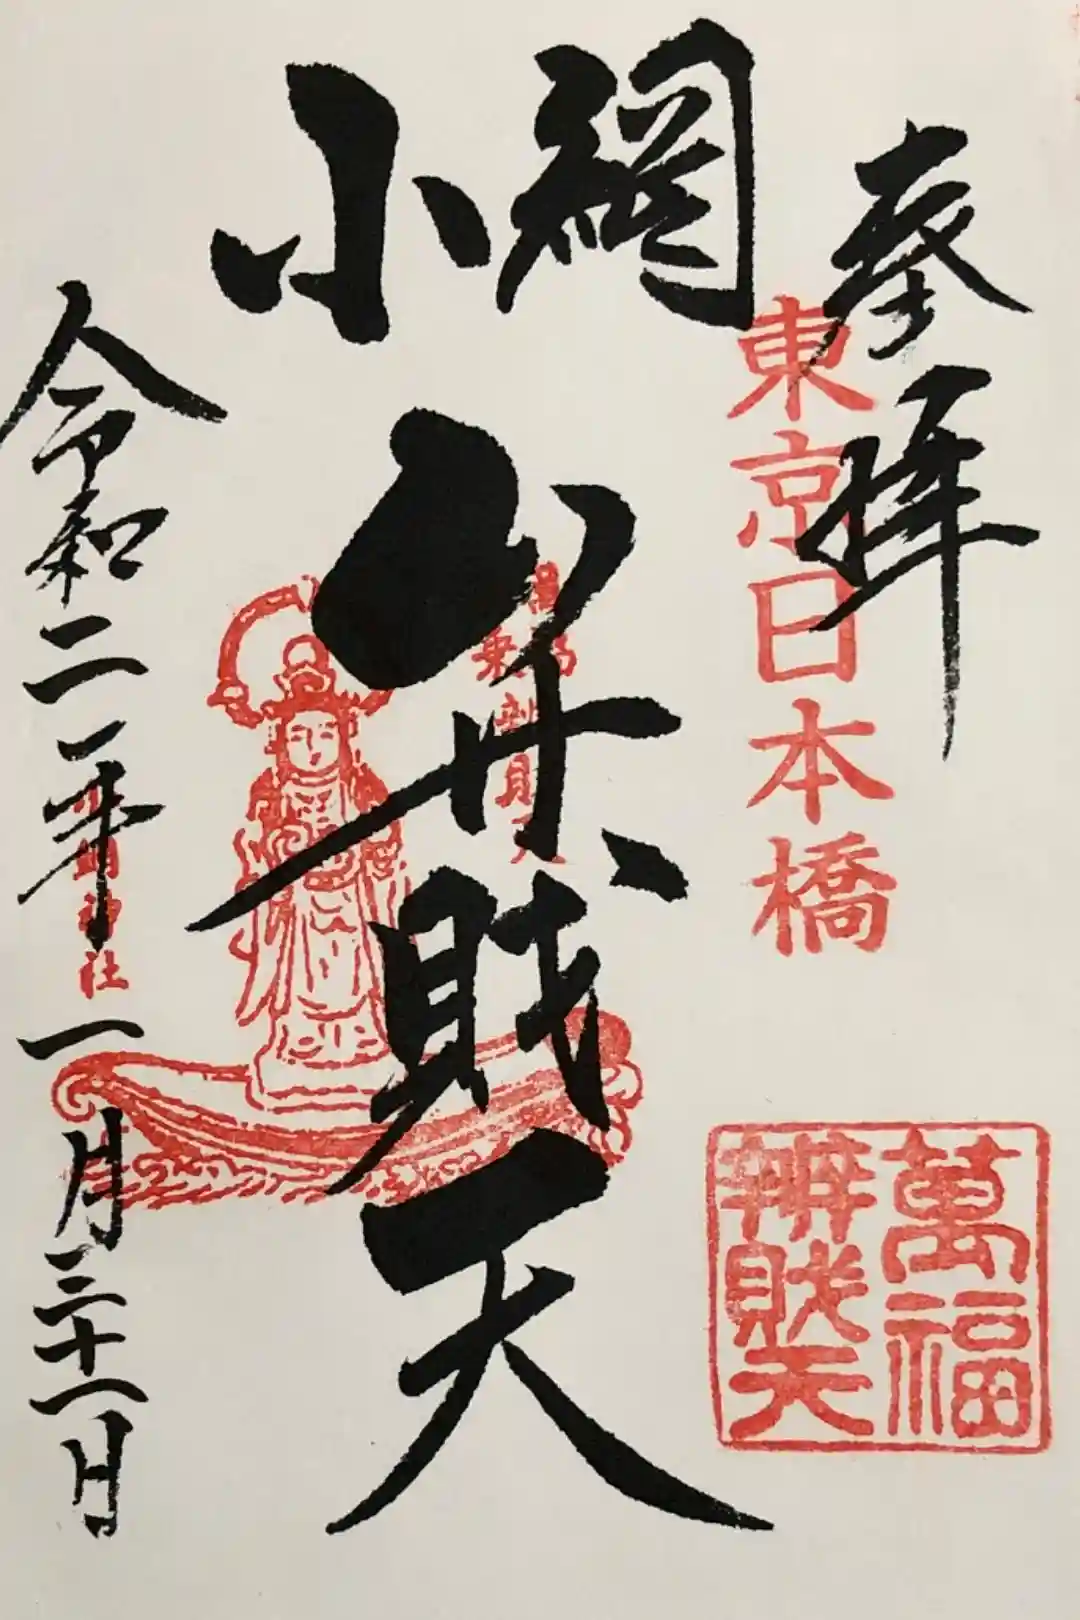 奉拝
東京日本橋
萬福
辨財天
小網
弁財天
令和二年一月三十一日
神社